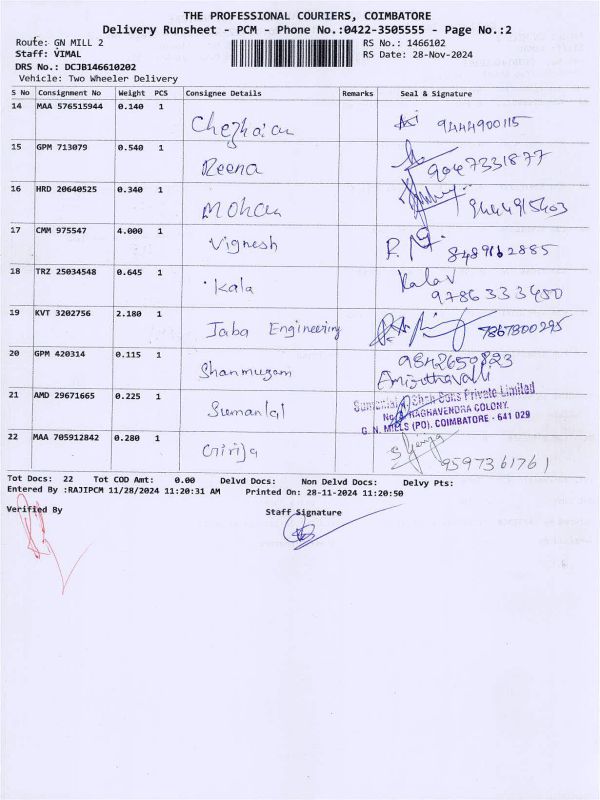 THE PROFESSIONAL COURIERS, COIMBATORE
Delivery Runsheet - PCM - Phone No.:0422-3505555 - Page No.:2
Route: GN MILL 2 RS No.: 1466102
Staff: VIMAL RS Date: 28-Nov-2024
DRS No.: DCJB146610202
Vehicle: Two Wheeler Delivery
S No Consignment No Weight PCS Consignee Details Remarks Seal & Signature
14 MAA 576515944 0.140 1 Chezhaian 9444900115
15 GPM 713079 0.540 1 Reena 9047331877
16 HRD 20640525 0.340 1 Mohan 9444915403
17 CMM 975547 4.000 1 Vignesh 8489162885
18 TRZ 25034548 0.645 1 Kala Kalav 9786333450
19 KVT 3202756 2.180 1 Jaba Engineering 7867800295
20 GPM 420314 0.115 1 Shanmugam 9842650823
Amirthavalli
21 AMD 29671665 0.225 1 Sumanlal Shah Sons Private Limited
RAGHAVENDRA COLONY,
G. N. MILLS (PO), COIMBATORE - 641 029
22 MAA 705912842 0.280 1 Girija 9597361761
Tot Docs: 22 Tot COD Amt: 0.00 Delvd Docs: Non Delvd Docs: Delvy Pts:
Entered By :RAJIPCM 11/28/2024 11:20:31 AM Printed On: 28-11-2024 11:20:50
Verified By Staff Signature